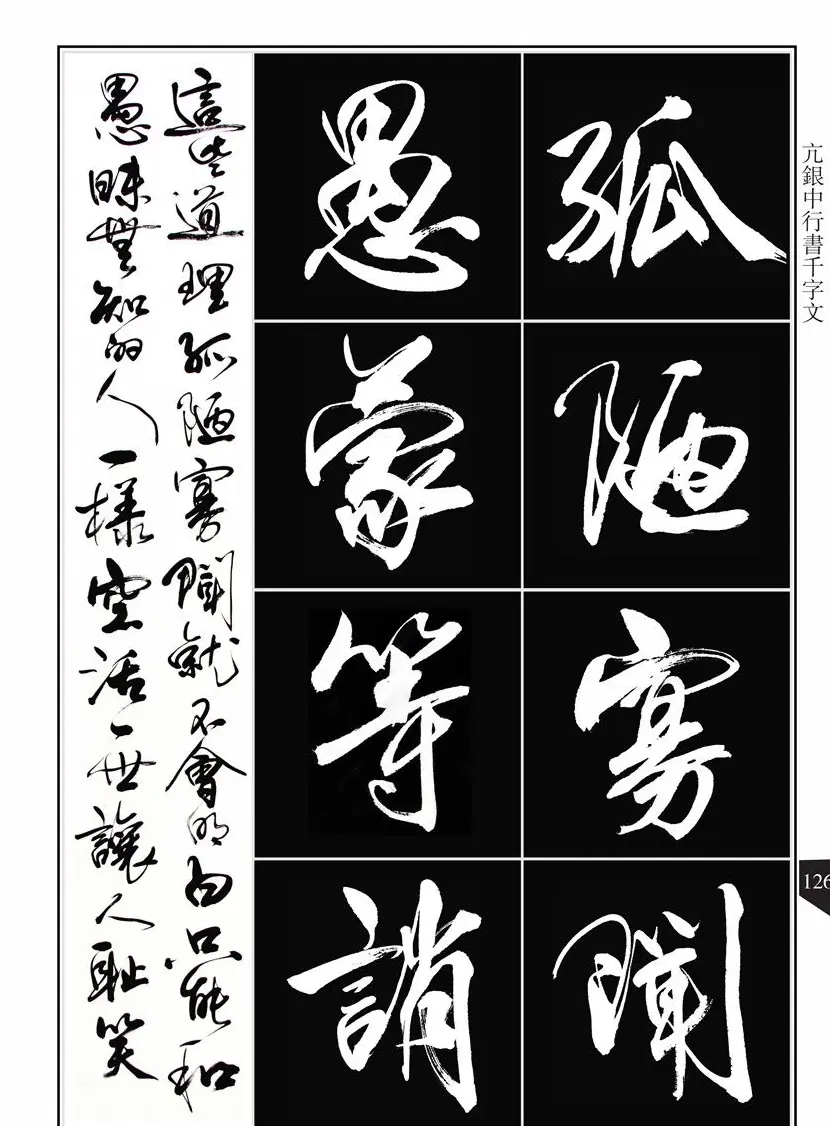 亢銀中行書千字文
126
孤陋寡聞
愚蒙等誚
這些道理孤陋寡聞就不會明白只能和
愚昧無知的人一樣空活一世讓人耻笑